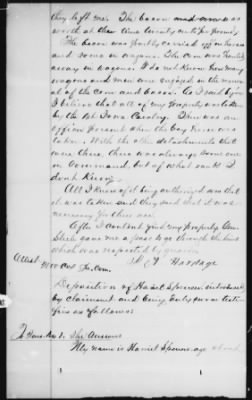 they left me. The bacon
worth at that time twenty cts per pound.
The bacon was partly carried off on horses
and some in wagons. The corn was hauled
away in wagons. I do not know how many
wagons and men were engaged in the removal
of the corn and bacon. As I said before
I believe that all of my property was taken
by the 1st Iowa Cavalry. There was an
officer present when the bay horse was
taken. With the other detachments that
were there, there was always some one
in command, but of what rank I
dont know.
All I know of it being authorized was that
it was taken and they said that it was
necessary for their use.
After I could not find my property, Genl
gave me a pass to go through the lines
which was requested by
Hardage
Attest
Spl. Com.
Deposition of Hamet Spencer introduced
by claimant and being duly sworn testi-
fies as follows:
To Int. No 1. She Answers
My name is Hamet Spencer age about